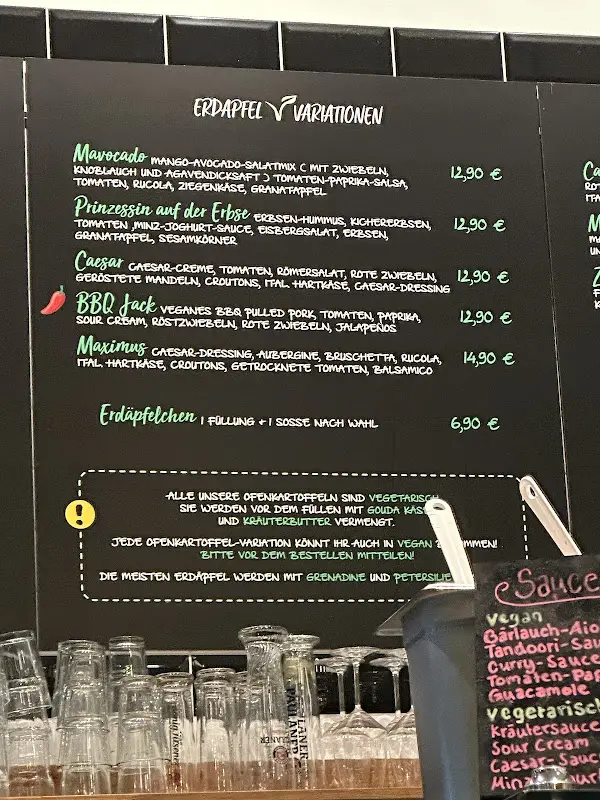 ERDAPFEL VARIATIONEN
Mavocado MANGO-AVOCADO-SALATMIX ( MIT ZWIEBELN,
KNOBLAUCH UND AGAVENDICKSAFT ) TOMATEN-PAPRIKA-SALSA, 12,90 €
TOMATEN, RUCOLA, ZIEGENKÄSE, GRANATAPFEL
Prinzessin auf der Erbse ERBSEN-HUMMUS, KICHERERBSEN,
TOMATEN ,MINZ-JOGHURT-SAUCE, EISBERGSALAT, ERBSEN, 12,90 €
GRANATAPFEL, SESAMKÖRNER
Caesar CAESAR-CREME, TOMATEN, RÖMERSALAT, ROTE ZWIEBELN, 12,90 €
GERÖSTETE MANDELN, CROUTONS, ITAL. HARTKÄSE, CAESAR-DRESSING
BBQ Jack VEGANES BBQ PULLED PORK, TOMATEN, PAPRIKA, 12,90 €
SOUR CREAM, RÖSTZWIEBELN, ROTE ZWIEBELN, JALAPEÑOS
Maximus CAESAR-DRESSING, AUBERGINE, BRUSCHETTA, RUCOLA, 14,90 €
ITAL. HARTKÄSE, CROUTONS, GETROCKNETE TOMATEN, BALSAMICO
Erdäpfelchen 1 FÜLLUNG + 1 SOSSE NACH WAHL 6,90 €
!
-ALLE UNSERE OFENKARTOFFELN SIND VEGETARISCH
SIE WERDEN VOR DEM FÜLLEN MIT GOUDA
UND KRÄUTERBUTTER VERMENGT.
JEDE OFENKARTOFFEL-VARIATION KÖNNT IHR AUCH IN VEGAN
BITTE VOR DEM BESTELLEN MITTEILEN!
DIE MEISTEN ERDÄPFEL WERDEN MIT GRENADINE UND PETERSILIE
Sauce
Vegan
Bärlauch-Aio
Tandoori-Sau
Curry-Sauce
Tomaten-Pap
Guacamole
Vegetarisch
Kräutersauce
Sour Cream
Caesar-Sauc
Minz